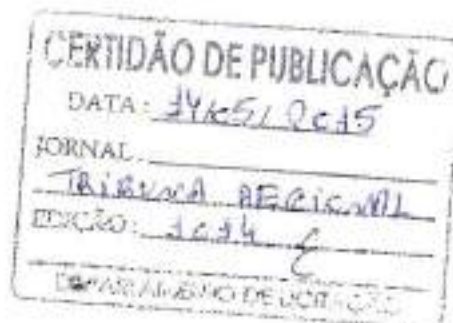 CERTIDÃO DE PUBLICAÇÃO
DATA: 14/05/2015
JORNAL
TRIBUNA REGIONAL
EDIÇÃO: 1014
DEPARTAMENTO DE LICITAÇÃO